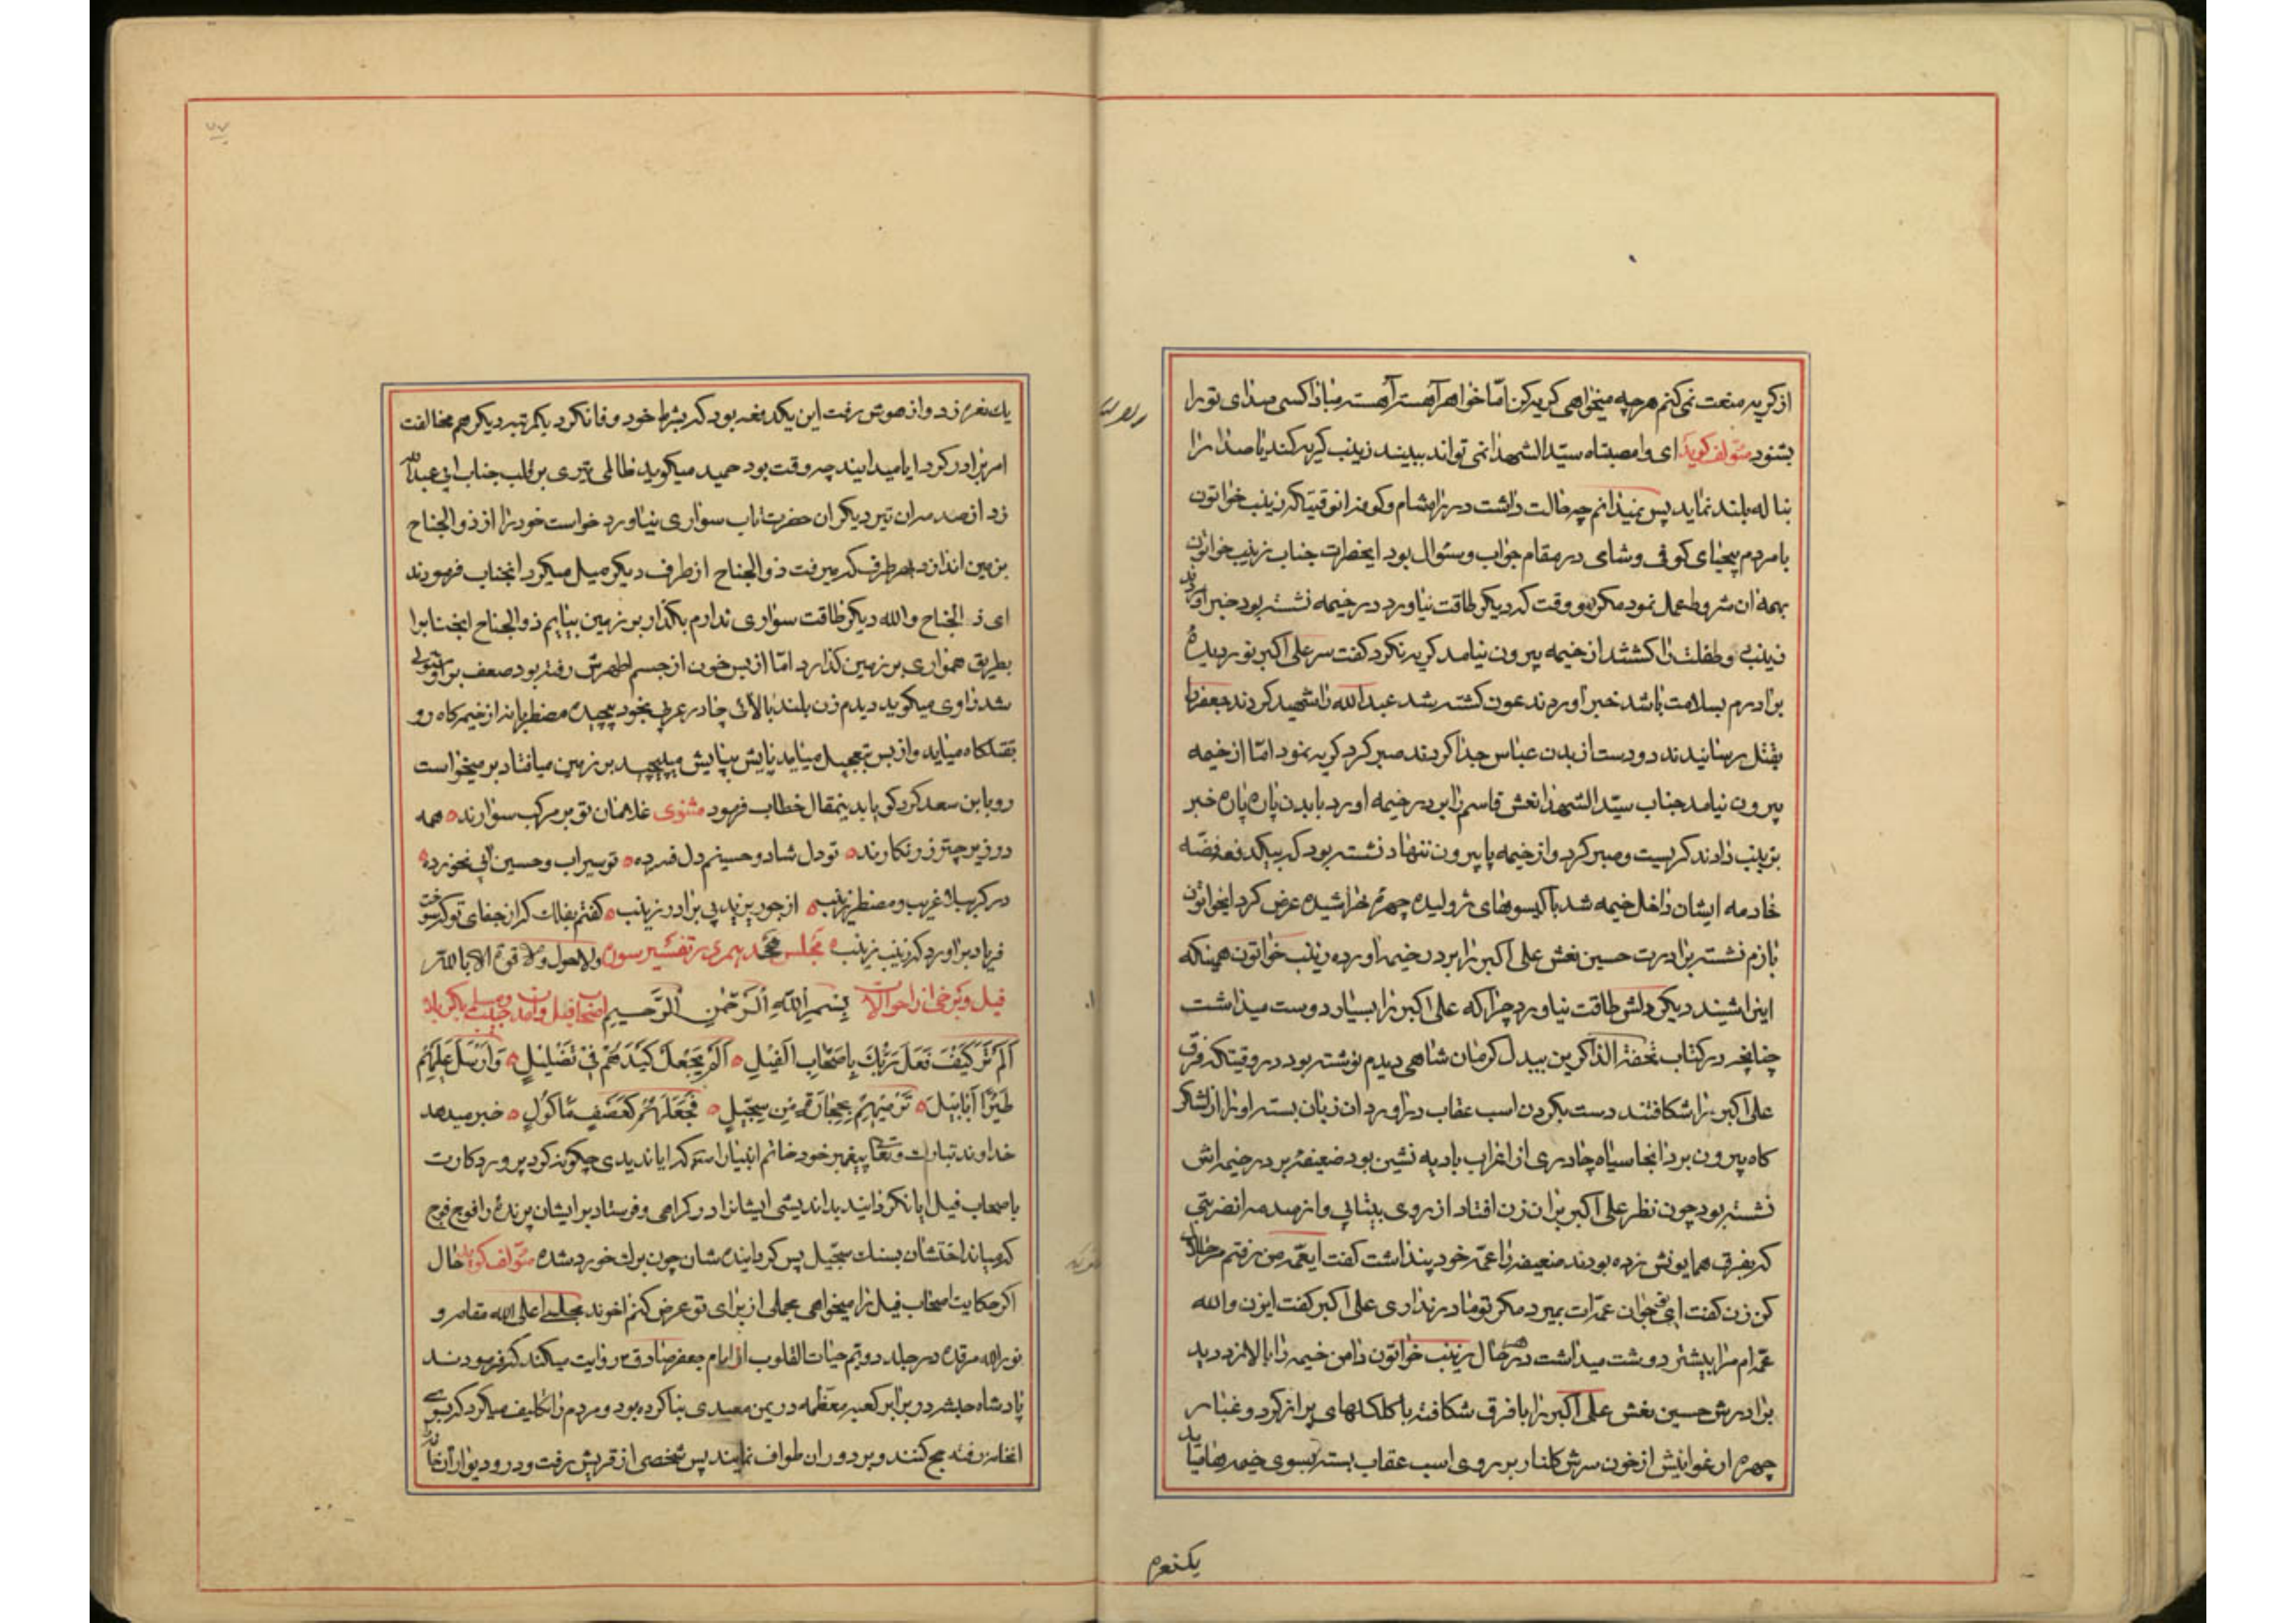 از کریه منعت نمی کنم هرچه میخواهی کریه کن امّا خواهر آهسته آهسته مبادا کسی صدای تو را
بشنود مؤلف کوید ای وا مصیبتاه سیّد الشهدا نمی تواند ببیند زینب کریه کند یا صدا را
بناله بلند نماید پس نمیدانم چه حالت داشت در راه شام و کوفه در انوقتیکه زینب خواتون
با مردم بیحیای کوفی و شامی در مقام جواب و سئوال بود ایحضرات جناب زینب خواتون
بهمه ان شروط عمل نمود مکر دو وقت که دیکر طاقت نیاورد در خیمه نشسته بود خبر اوردند
زینب دو طفلت را کشتند از خیمه بیرون نیامد کریه نکرد کفت سر علی اکبر نوردیده
برادرم بسلامت باشد خبر اوردند عون کشته شد عبد الله را شهید کردند جعفر را
بقتل رسانیدند دو دست از بدن عباس جدا کردند صبر کرد کریه نمود امّا از خیمه
بیرون نیامد جناب سیّد الشهدا نعش قاسم را بر در خیمه اورد با بدن پاره پاره خبر
بزینب دادند کریست و صبر کرد و از خیمه پا بیرون ننهاد نشسته بود که بیکدفعه فضّه
خادمه ایشان داخل خیمه شد با کیسوهای ژولیده چهره خراشیده عرض کرد ایخواتون
بازم نشسته برادرت حسین نعش علی اکبر را بر در خیمه اورده زینب خواتون همینکه
اینرا شنید دیکر دلش طاقت نیاورد چرا که علی اکبر را بسیار دوست میداشت
چنانچه در کتاب تحفة الذاکرین بیدل کرمان شاهی دیدم نوشته بود در وقتیکه فرق
علی اکبر را شکافتند دست بکردن اسب عقاب در اورد ان زبان بسته او را از لشکر
کاه بیرون برد انجا سیاه چادری از اعراب بادیه نشین بود ضعیفه بر در خیمه اش
نشسته بود چون نظر علی اکبر بران زن افتاد از روی بیتابی و از صدمه انضربتی
که بفرق همایونش زده بودند ضعیفه را عمّه خود پنداشت کفت ایعمّه من رفتم مرا حلال
کن زن کفت ای جوان عمّه ات بمیرد مکر تو مادر نداری علی اکبر کفت ایزن والله
عمّه ام مرا بیشتر دوست میداشت در هر حال زینب خواتون دامن خیمه را بالا زد دید
برادرش حسین نعش علی اکبر را با فرق شکافته با کاکلهای پر از کرد و غبار
چهره ارغوانیش از خون سرش کلنار بر روی اسب عقاب بسته بسوی خیمه ها میاید
یکنعره
یک نعره زد و از هوش رفت این یکدفعه بود که بشرط خود وفا نکرد یکمرتبه دیکر هم مخالفت
امر برادر کرد ایا میدانید چه وقت بود حمید میکوید ظالمی تیری بر قلب جناب ابی عبد الله
زد از صدمه ان تیر دیکر ان حضرت تاب سواری نیاورد خواست خود را از ذوالجناح
بزمین اندازد بهر طرف که میرفت ذوالجناح از طرف دیکر میل میکرد انجناب فرمودند
ای ذوالجناح والله دیکر طاقت سواری ندارم بکذار بر زمین بیایم ذوالجناح انجنابرا
بطریق همواری بر زمین کذارد امّا از بس خون از جسم اطهرش رفته بود ضعف بر او مستولی
شد راوی میکوید دیدم زن بلند بالائی چادر عربی بخود پیچیده مضطربانه از خیمه کاه رو
بقتلکاه میاید و از بس تعجیل میاید پایش بپایش میپیچید بر زمین میافتاد بر میخواست
رو بابن سعد کرد کویا بدینمقال خطاب فرمود مثنوی غلامان تو بر مرکب سوارند ه همه
در زیر چتر زرنکارند ه تو دل شاد و حسینم دل فسرده ه تو سیراب و حسین ابی نخورده ه
در کربلا غریب و مضطر زینب ه از جور یزید بی برادر زینب ه کفتم بفلک که از جفای تو که سوخت
فریاد بر اورد که زینب زینب ه مجلس هجدهم در تفسیر سوره ولا حول ولا قوة الا بالله
فیل و برخی از احوالات بسم الله الرّحمن الرّحیم اصحاب فیل
اَلَم تَرَ کَیفَ فَعَلَ رَبُّکَ بِاَصحابِ الفیلِ ه اَلَم یَجعَل کَیدَهُم فی تَضلیلٍ ه وَاَرسَلَ عَلَیهِم
طَیرًا اَبابیلَ ه تَرمیهِم بِحِجارَةٍ مِن سِجّیلٍ ه فَجَعَلَهُم کَعَصفٍ مَاکولٍ ه خبر میدهد
خداوند تبارک و تعالی پیغمبر خود خاتم انبیا را که ایا ندیدی چکونه کرد پروردکارت
باصحاب فیل ایا نکردانید بد اندیشی ایشانرا در کمراهی و فرستاد بر ایشان پرنده را فوج فوج
که میانداختشان بسنک سجّیل پس کردانیدشان چون برک خورد شده مؤلف کوید حال
اکر حکایت اصحاب فیل را میخواهی مجملی از برای تو عرض کنم اخوند مجلسی اعلی الله مقامه و
نور الله مرقده در جلد دویّم حیات القلوب از امام جعفر صادق روایت میکند که فرمودند
پادشاه حبشه در برابر کعبه معظّمه در یمن معبدی بنا کرده بود و مردم را تکلیف میکرد که بسوی
انخانه رفته حج کنند و بر دور ان طواف نمایند پس شخصی از قریش رفت و در و دیوار آن خانه